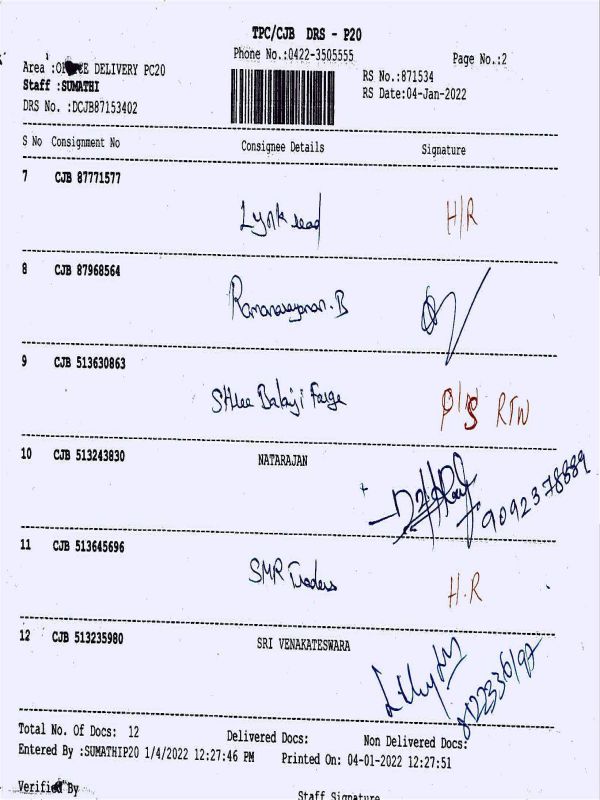 TPC/CJB DRS - P20
Phone No.:0422-3505555
Page No.:2
Area : DELIVERY PC20
RS No.:871534
Staff :SUMATHI
RS Date:04-Jan-2022
DRS No. :DCJB87153402
S No Consignment No Consignee Details Signature
7 CJB 87771577
H/R
8 CJB 87968564
Ramanarayanan.B
9 CJB 513630863
Shree Balaji Forge RTN
10 CJB 513243830 NATARAJAN
9092378889
11 CJB 513645696
SMR Traders H.R
12 CJB 513235980 SRI VENAKATESWARA
Total No. Of Docs: 12 Delivered Docs: Non Delivered Docs:
Entered By :SUMATHIP20 1/4/2022 12:27:46 PM Printed On: 04-01-2022 12:27:51
Verified By
Staff Signature